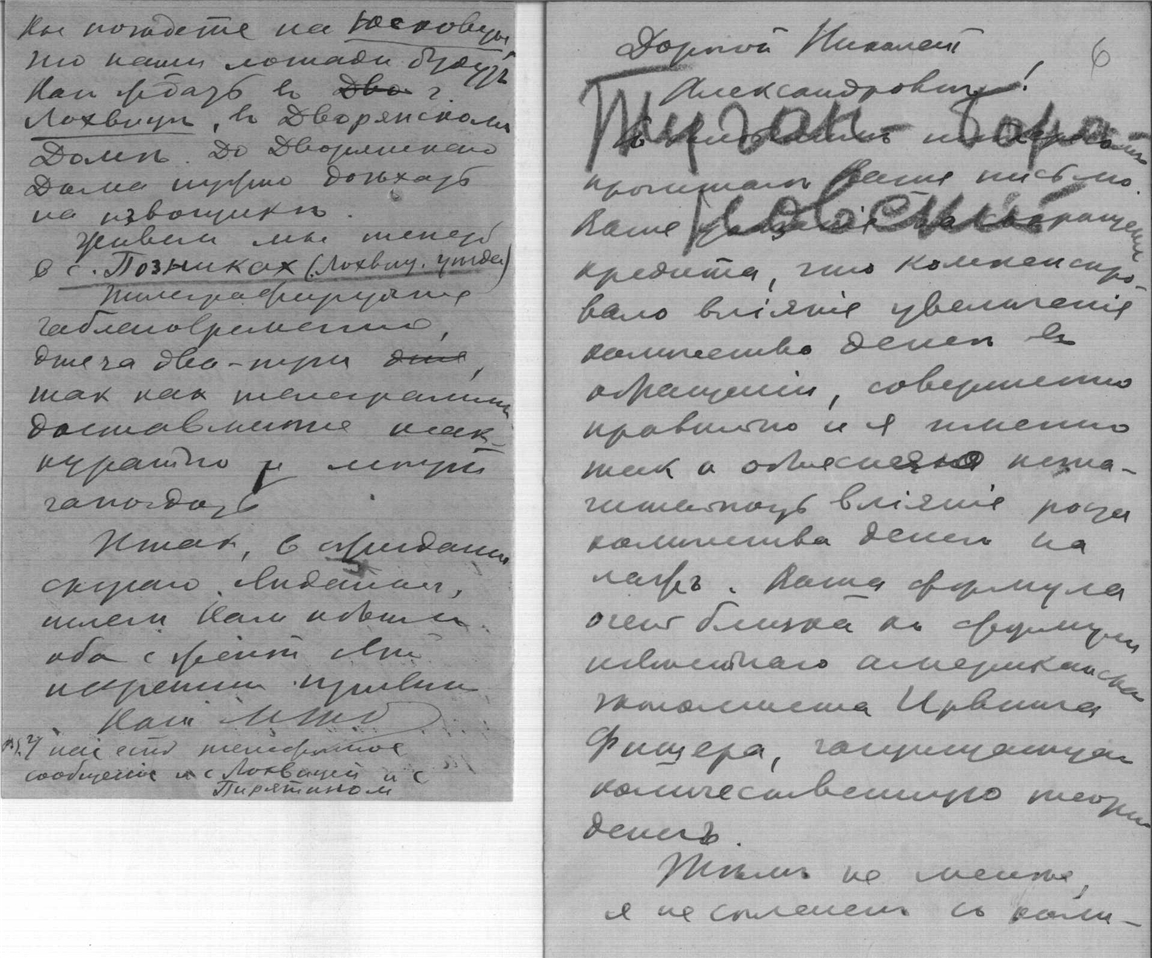 Вы поѣдете на Юсковцы,
то наши лошади будутъ
Вас ждать въ г.
Лохвицѣ, въ Дворянскомъ
Домѣ. До Дворянскаго
Дома нужно доѣхать
на извощикѣ.
Живем мы теперь
в с. Позниках (Лохвиц. уѣзда)
Телеграфируйте
заблаговременно,
дня за два-три,
так как телеграммы
доставляются неак-
куратно и могут
запоздать
Итак, в ожидании
скораго свиданья,
шлем Вам
оба с женой свой
искренний привѣт
Ваш МТБ
P.S. У нас есть телефонное
сообщение и с Лохвицей и с
Пирятином
6
Дорогой Николай
Александрович!
Туган-Бара-
новский
Съ интересомъ
прочиталъ Ваше письмо.
Ваше на сокращение
кредита, что компенсиро-
вало вліяніе увеличенія
количества денег въ
обращеніи, совершенно
правильно и я именно
так и объясняю незна-
чительность вліянія роста
количества денег на
лажъ. Ваша формула
очень близка къ формулѣ
извѣстнаго американска
экономиста Ирвинга
Фишера, защищающаго
количественную теорию
денегъ.
Тѣмъ не менѣе,
я не согласен съ коли-